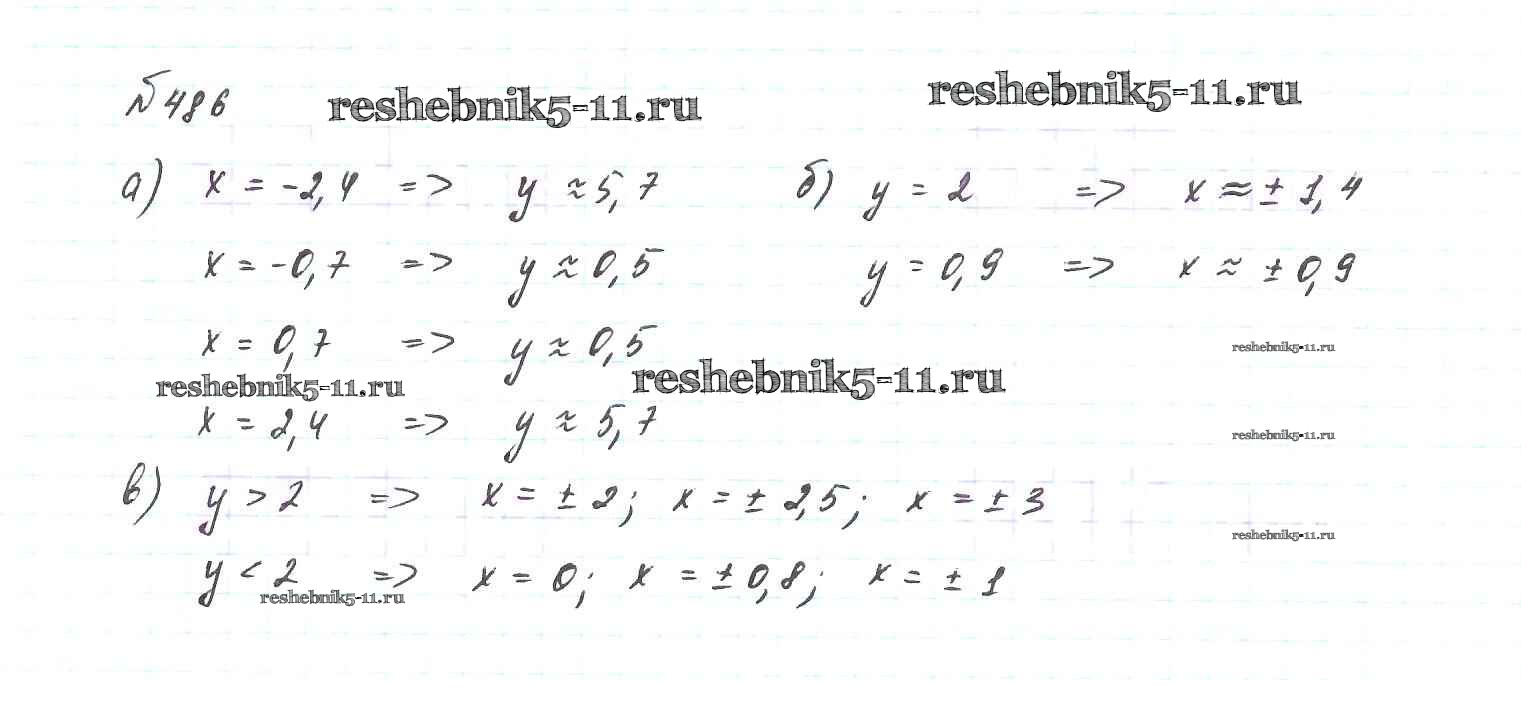 № 486 reshebnik5-11.ru reshebnik5-11.ru
а) x = -2,4 => y ≈ 5,7 б) y = 2 => x ≈ ± 1,4
x = -0,7 => y ≈ 0,5 y = 0,9 => x ≈ ± 0,9
x = 0,7 => y ≈ 0,5 reshebnik5-11.ru
reshebnik5-11.ru reshebnik5-11.ru
x = 2,4 => y ≈ 5,7 reshebnik5-11.ru
в) y > 2 => x = ± 2; x = ± 2,5; x = ± 3
reshebnik5-11.ru
y < 2 => x = 0; x = ± 0,8; x = ± 1
reshebnik5-11.ru